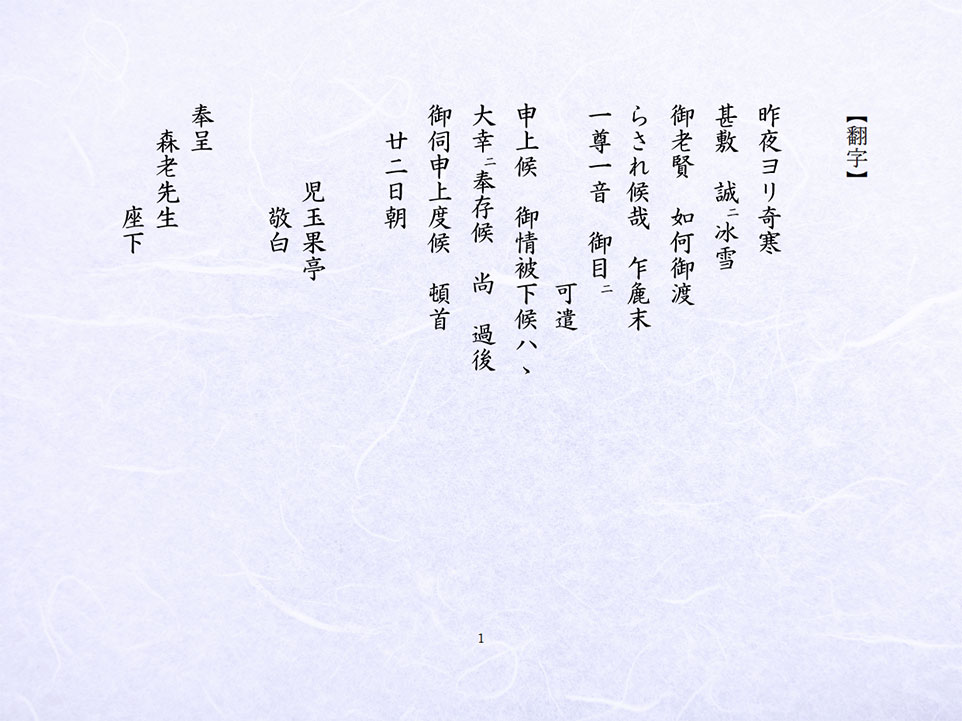 【翻字】
昨夜ヨリ奇寒
甚敷　誠ニ冰雪
御老賢　如何御渡
らされ候哉　乍麁末
一尊一音　御目ニ
可遣
申上候　御情被下候ハヽ
大幸ニ奉存候　尚　過後
御伺申上度候　頓首
廿二日朝
児玉果亭
敬白
奉呈
森老先生
座下
1